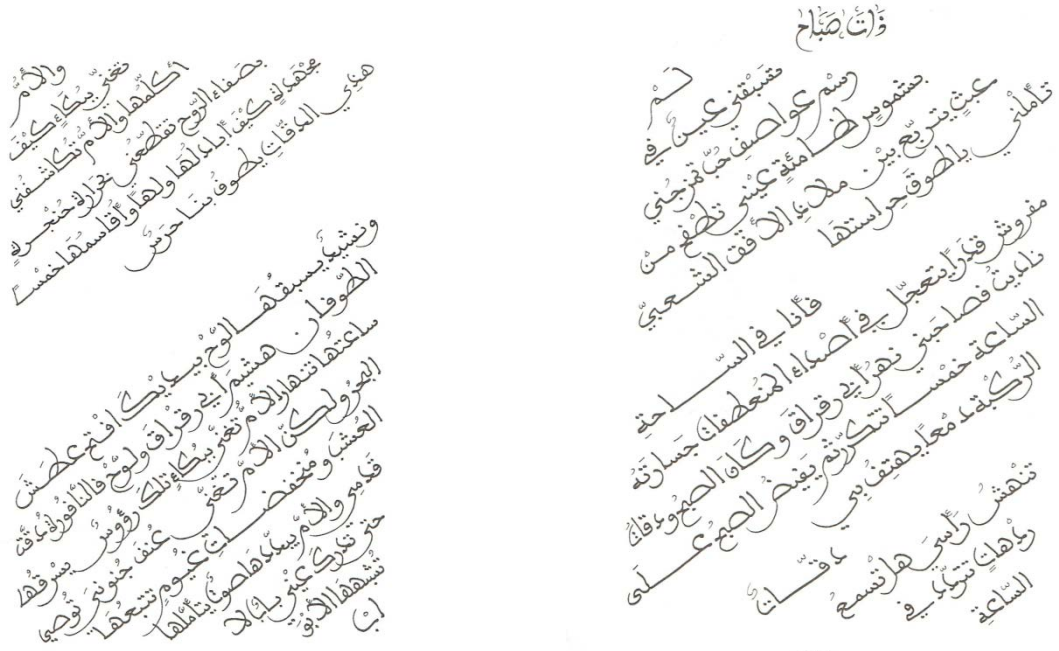 ذات صباح
لم
تسبقني عين في
رسم عواصف حب تمزجني
بشموس ظامئة عيني تطفح من
عبث يتربع بين الأفق الشعبي
تأملني يا طوق حراستها
فأنا في الساحة
مفروش قدرا يتعجل في أصداء المنعطفات جسارته
ناديت فصاحبني نهر أبي رقراق وكان الصبح ودقات
الساعة خمسا تتكرر ثم يفيض الصبح على
الركبة دمعا يهتف بي
دقات
تنهش رأسي هل تسمع
ردهات تتردد في
الساعة
والأم
تغني ببكاء كيف
أكلمها والأم تكاشفني
بصفاء الروح تقطعني بحرارة حنجرة
مجهدة كيف أبادلها ولها وأقاسمها خمسا
هذي الدقات يطوف بنا حرس
ونشيد يسبقها لوح بيديك افتح عطش
الطوفان هشيم أبي رقراق ولوح فالنافورة دقت
ساعتها تنهار الأم تغني ببكاء تلك رؤوس يسرقها
البحر ولكن الأم تغني عنف جنوني توصي
العشب ومنخفضات غيوم تتبعها
قدمي والأم يبددها صوت يتأملها
حتى تدرك عيني بابا لا
تشبهها الأبو
اب